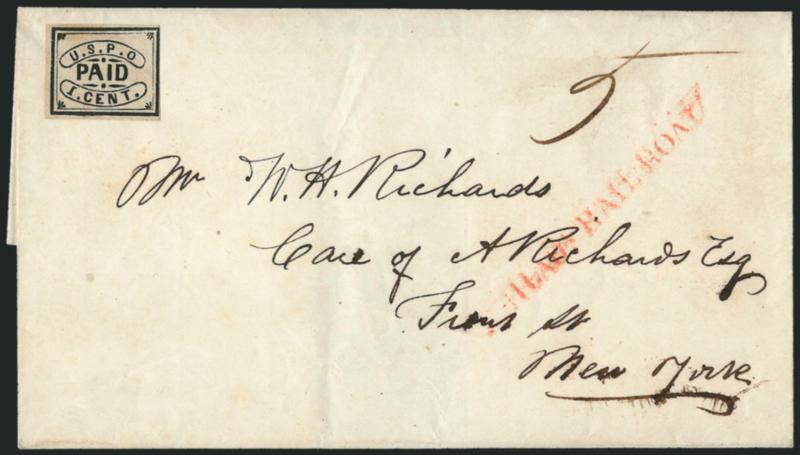 U.S.P.O
PAID
1.CENT.
5
Mr W.H. Richards
Care of A Richards Esq
Front St
New York
RAILROAD